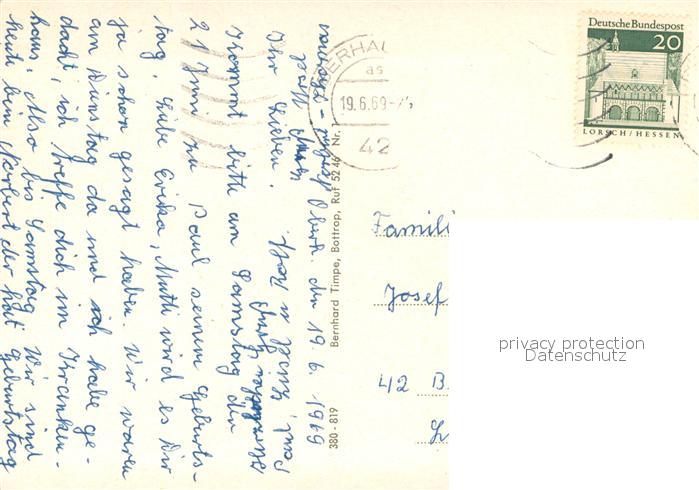 Oberh. den 19.6.1969
Ihr Lieben.
Kommt bitte am Samstag den
21 Juni zu Paul seinem Geburts-
tag. Liebe Erika, Mutti wird es Dir
ja schon gesagt haben. Wir waren
am Dienstag da und ich habe ge-
dacht, ich treffe dich im Kranken-
haus. Also bis Samstag. Wir sind
heute beim Norbert der hat Geburtstag
Bernhard Timpe, Bottrop, Ruf 52 46 Nr.
380 - 819
19.6.69
42
Deutsche Bundespost
20
LORSCH/HESSEN
Famili
Josef
42 B
privacy protection
Datenschutz